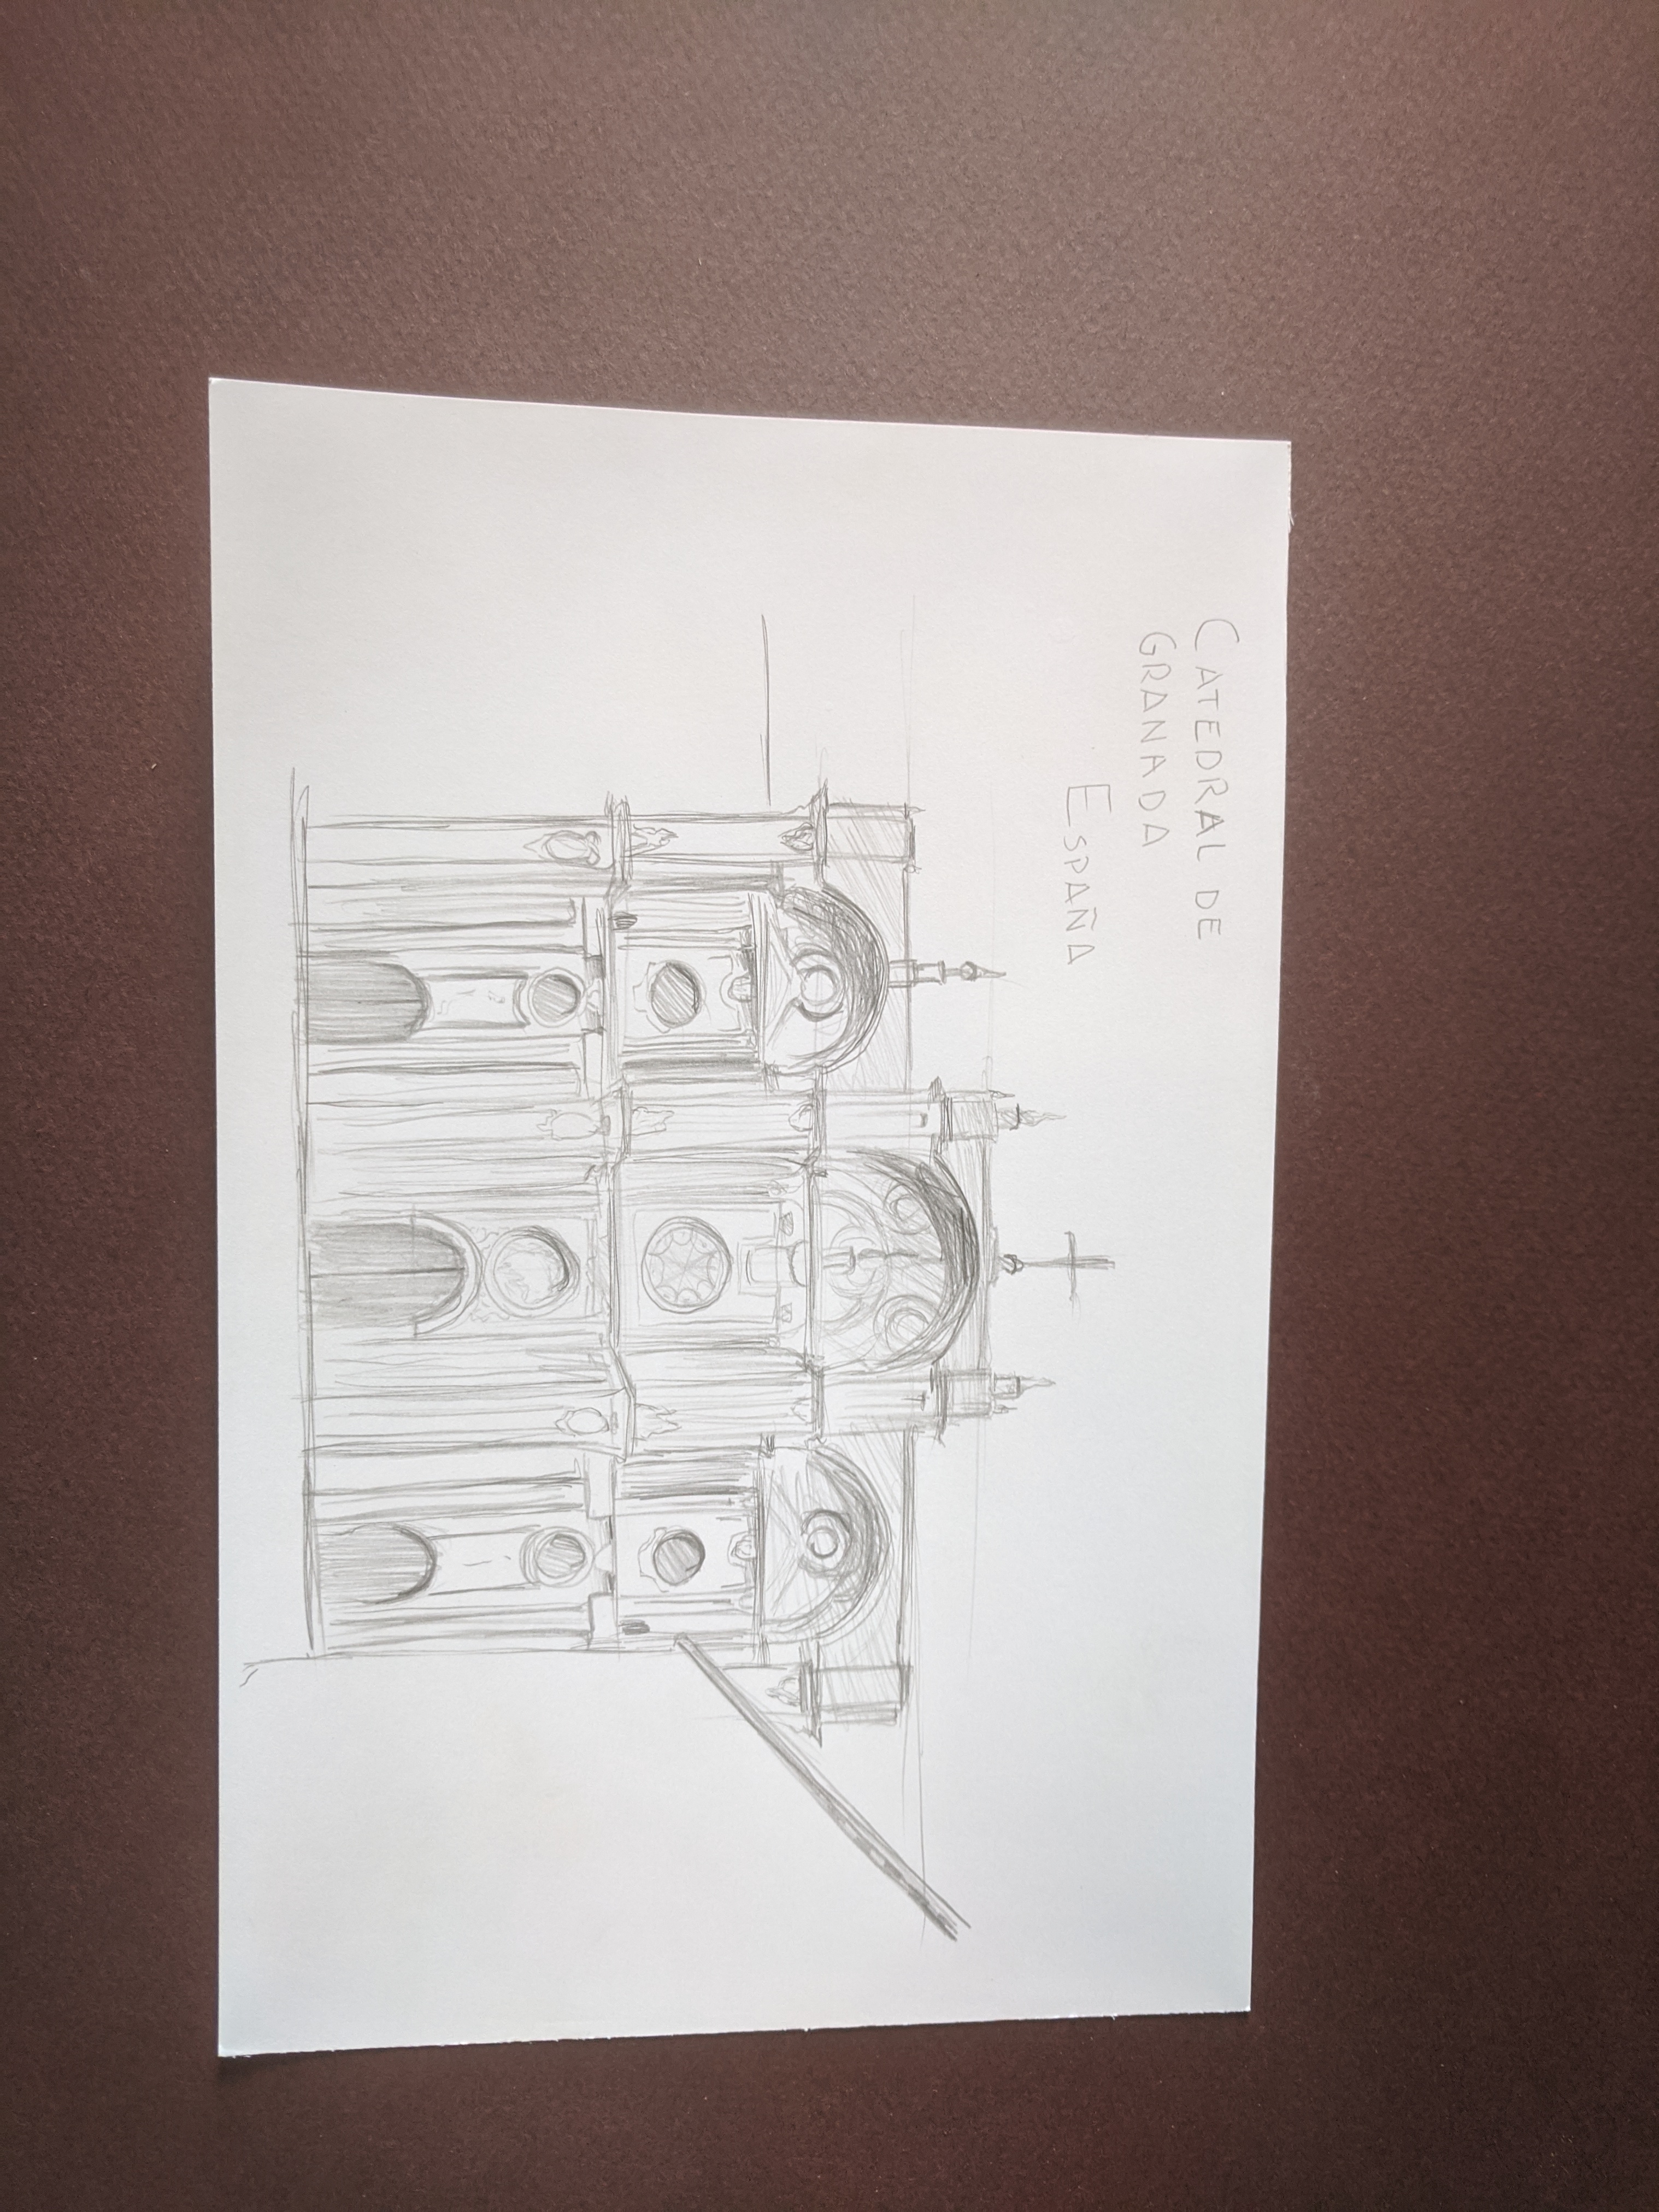 CATEDRAL DE
GRANADA
ESPAÑA